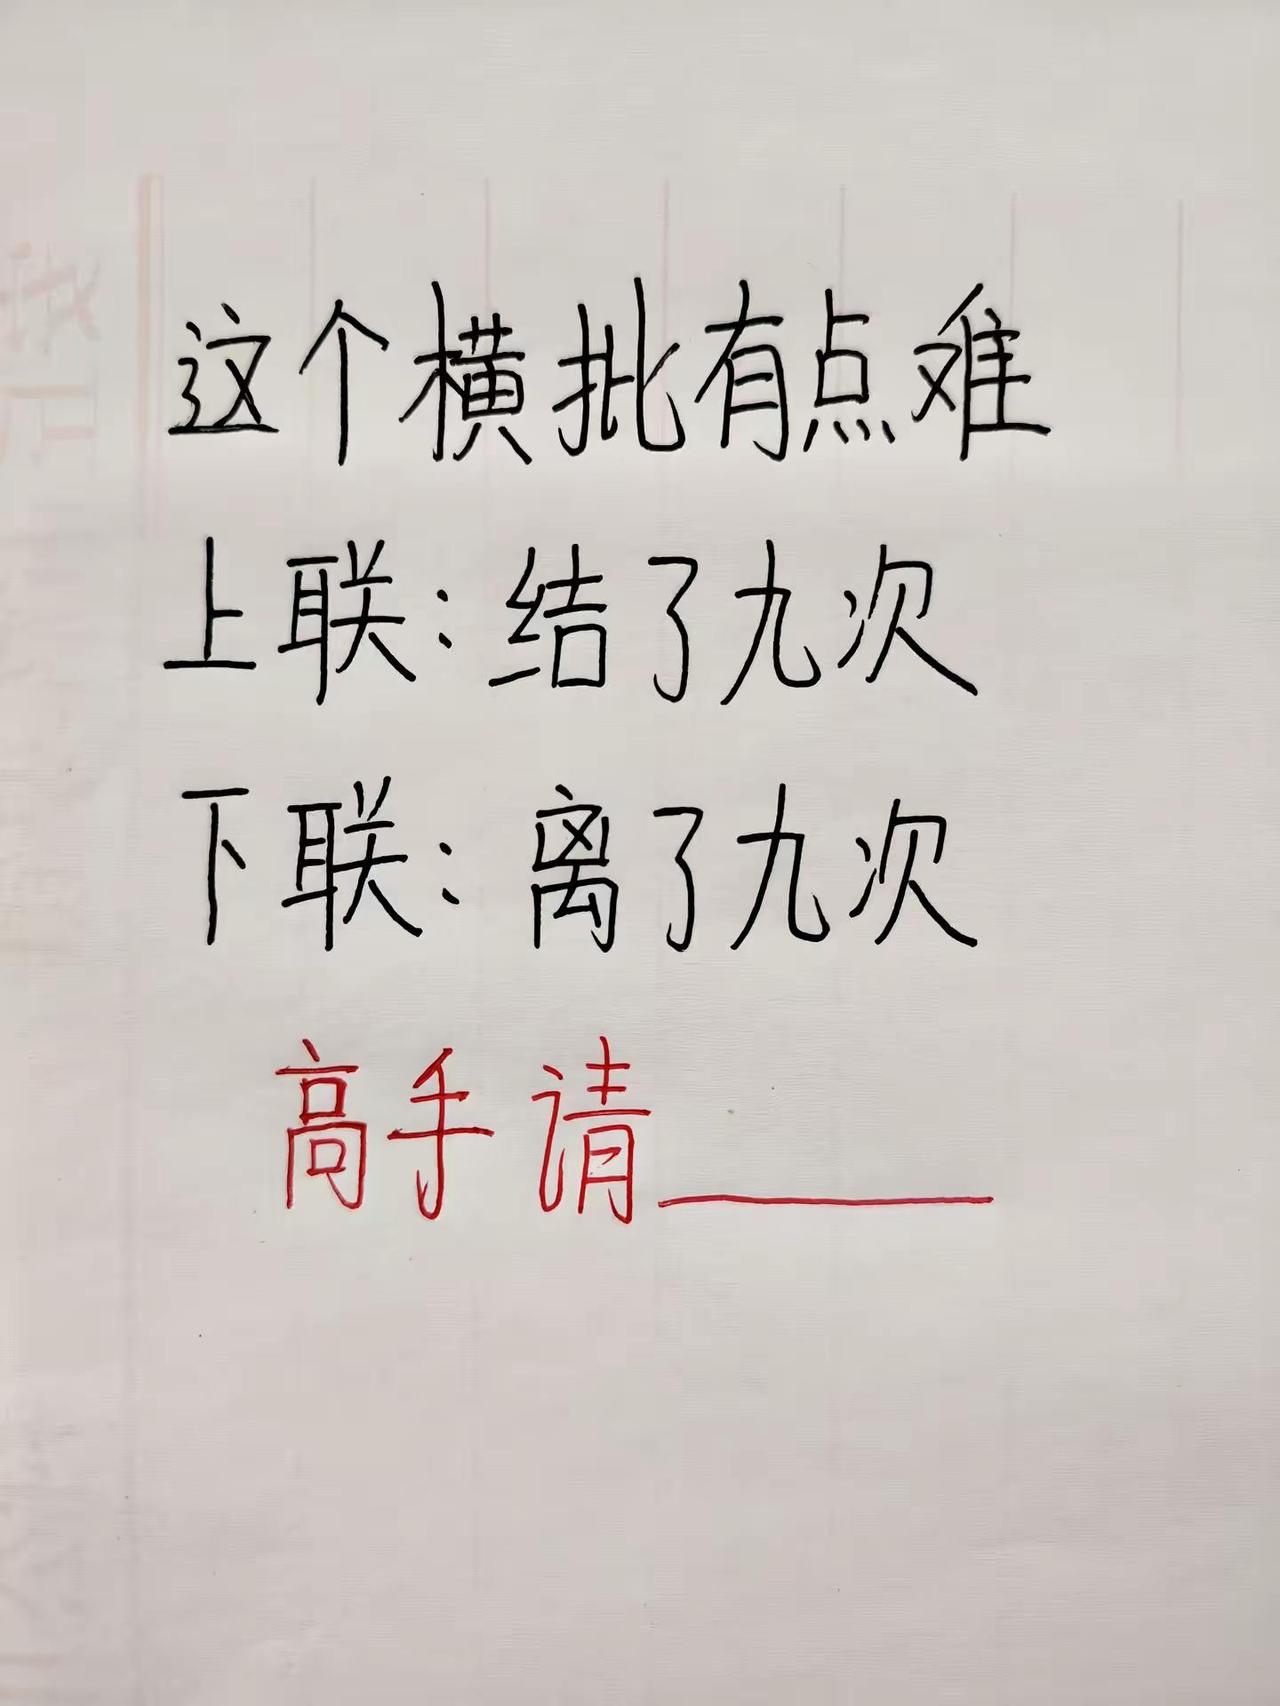 这个横批有点难
上联:结了九次
下联:离了九次
高手请______